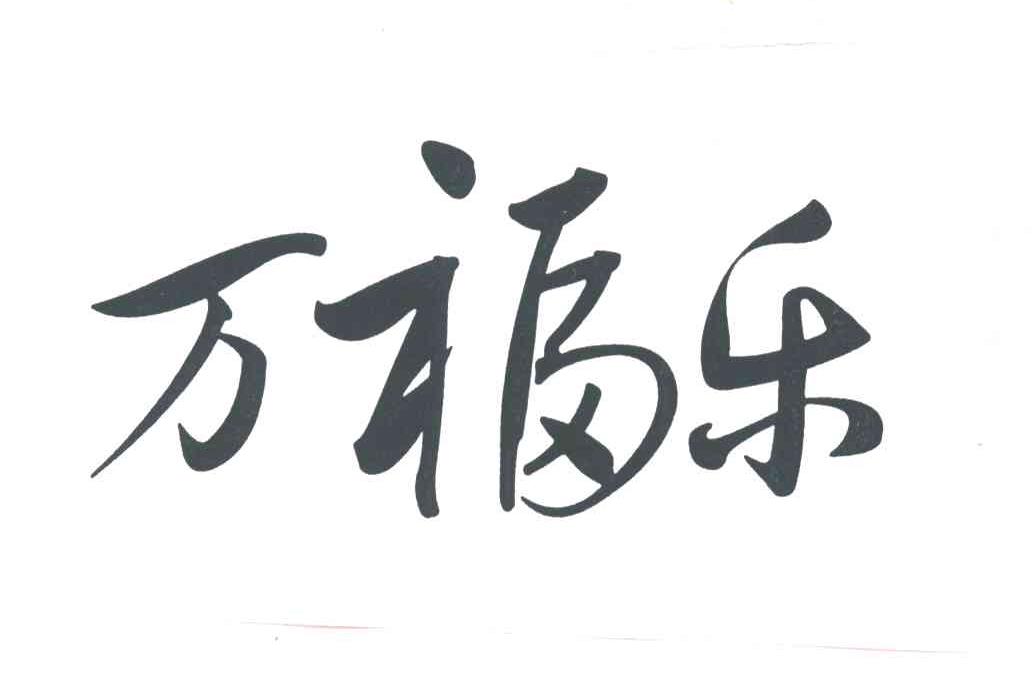 万福乐